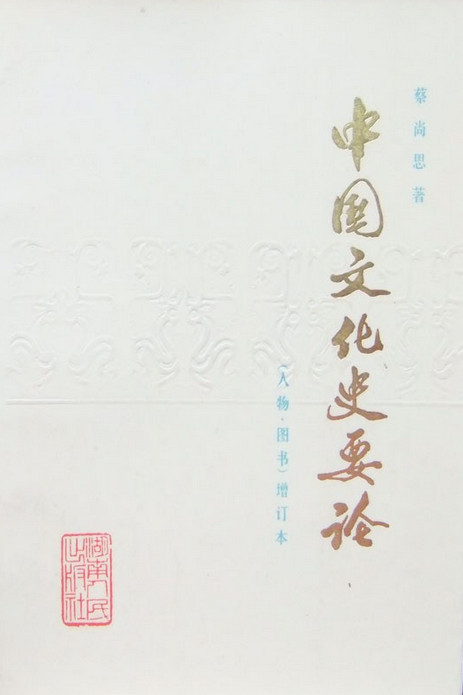 蔡尚思著
中国文化史要论
(人物·图书)增订本
湖南人民
出版社